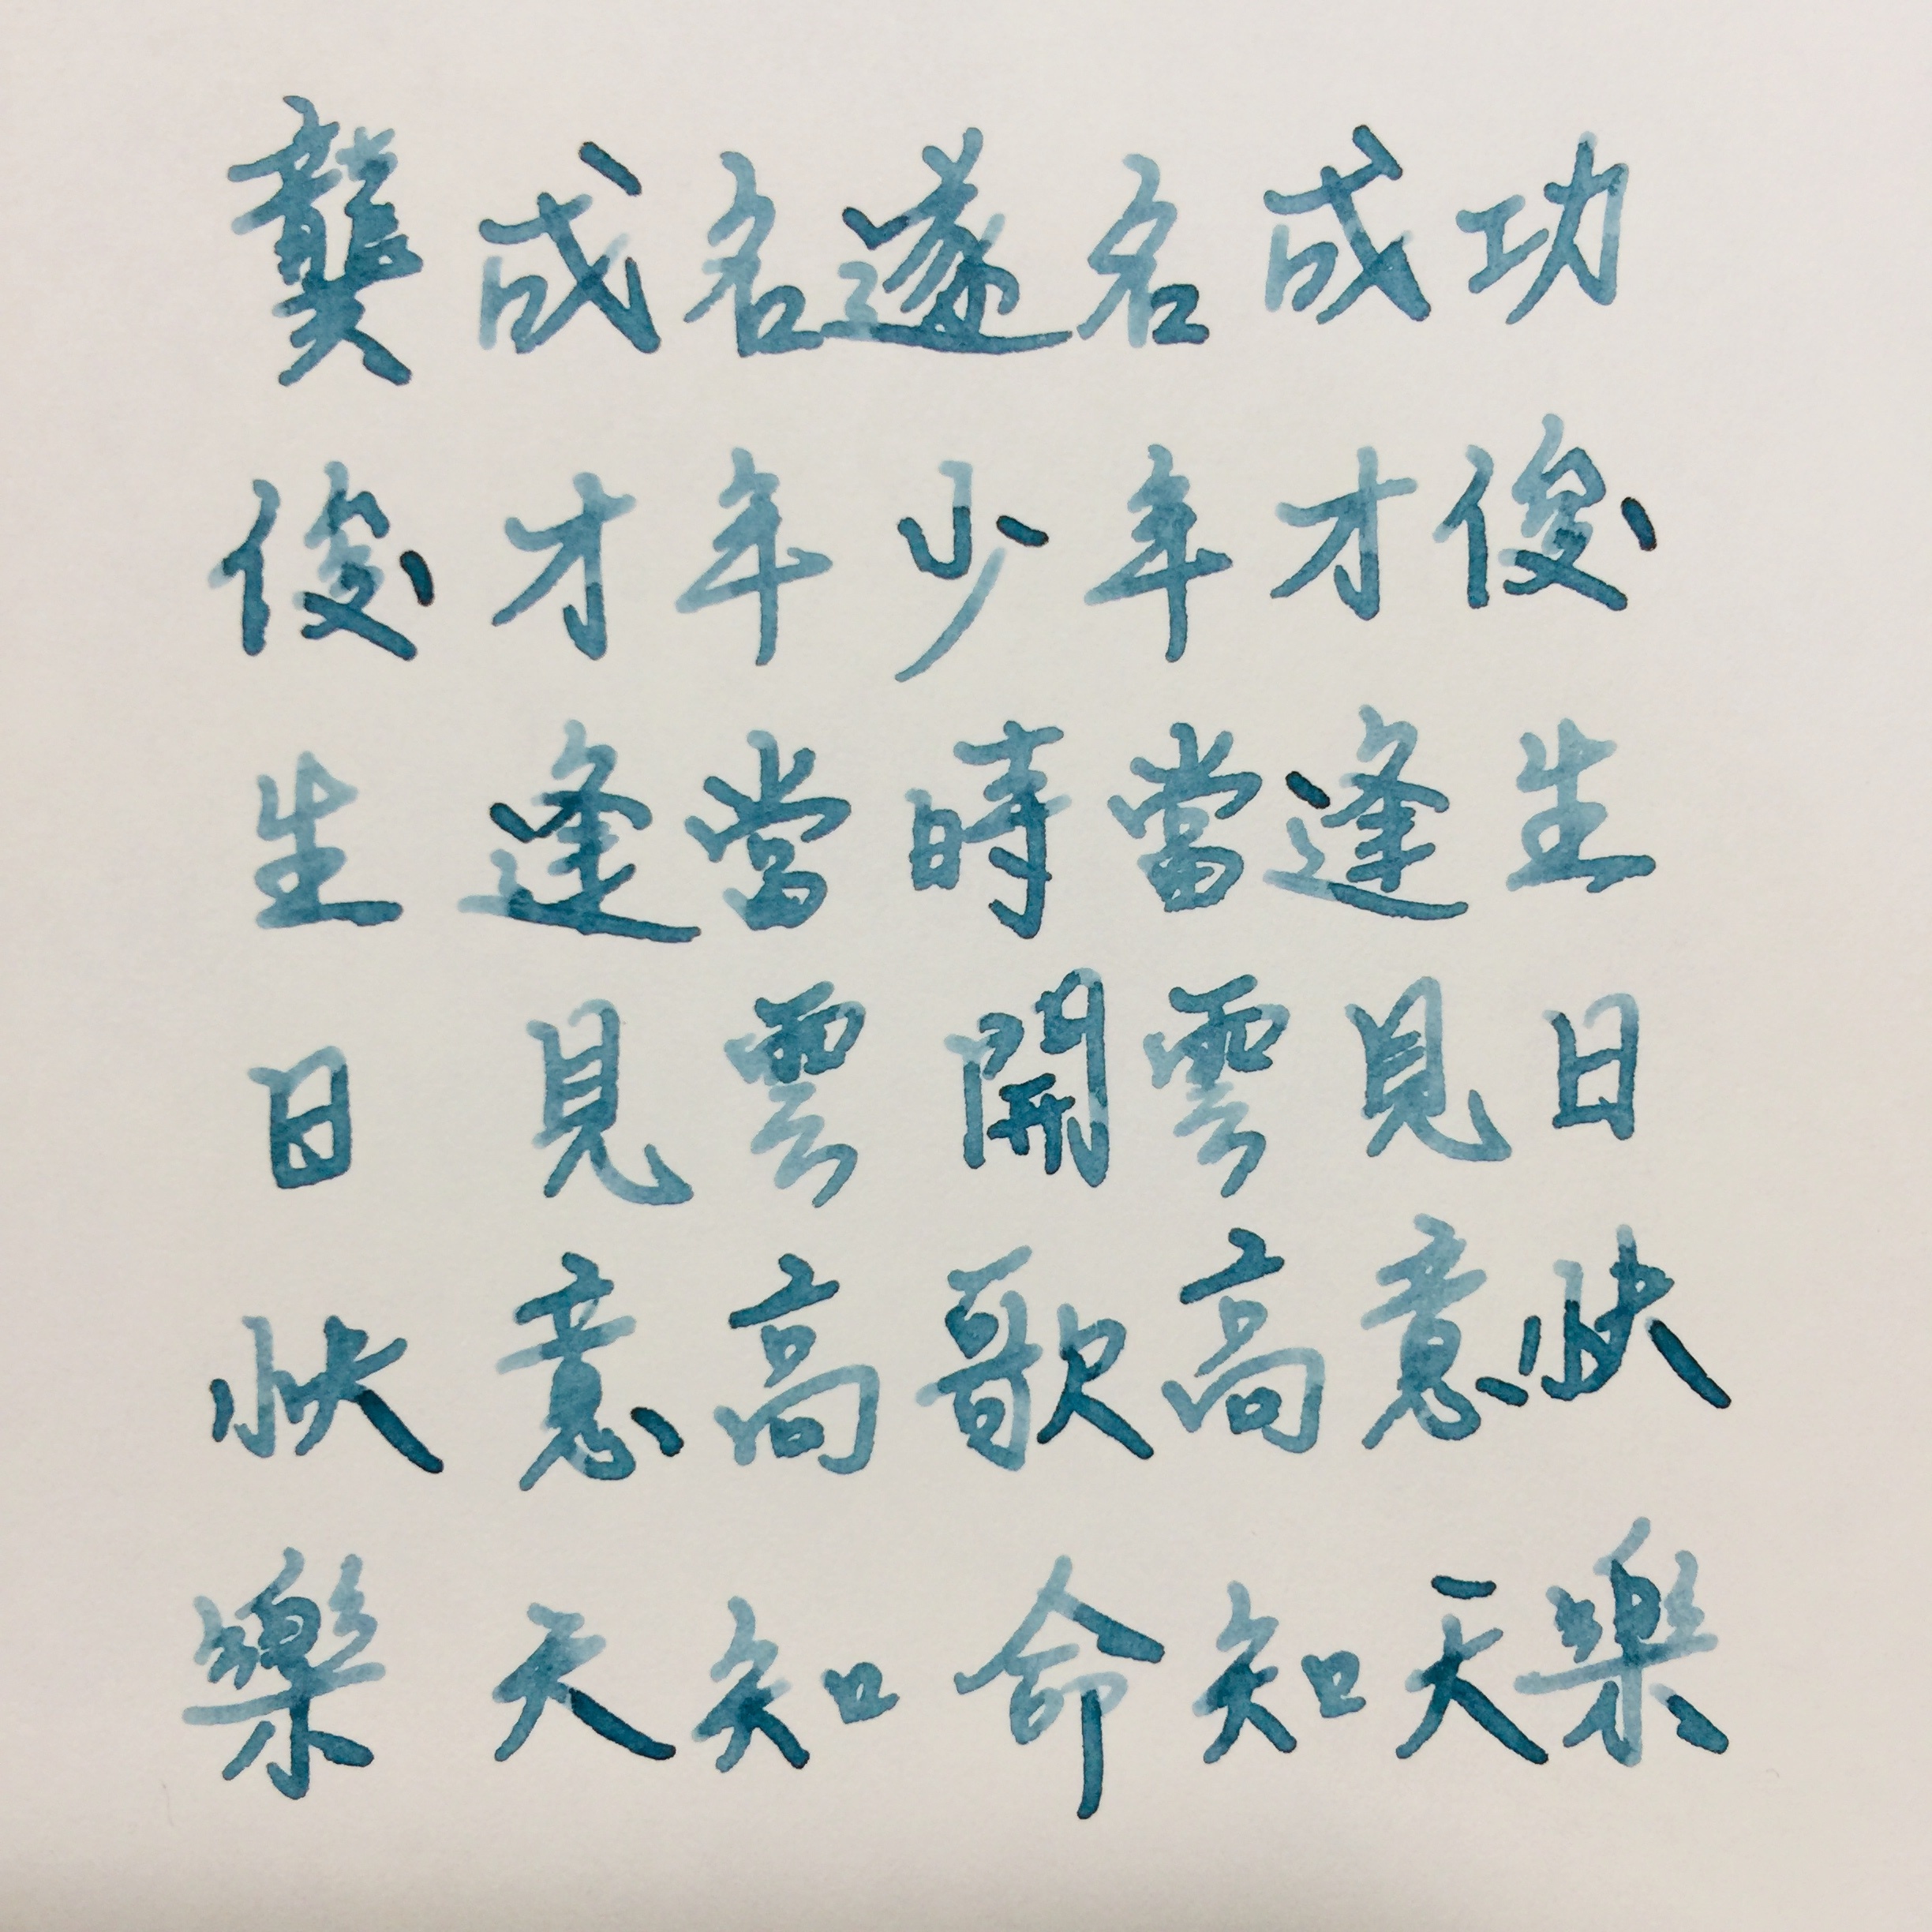 龔成名遂名成功
俊才年少年才俊
生逢當時當逢生
日見雲開雲見日
快意高歌高意快
樂天知命知天樂